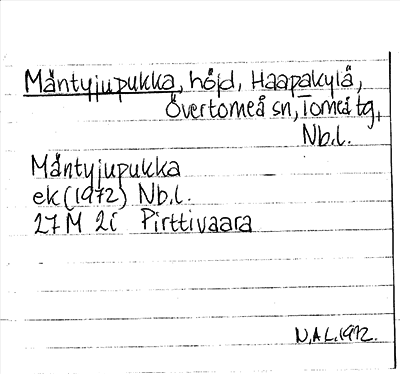 Mäntyjupukka, höjd, Haapakylä,
Övertorneå sn, Torneå tg,
Nb.l.
Mäntyjupukka
ek (1972) Nb.l.
27M 2i Pirttivaara
N.A.L. 1972.